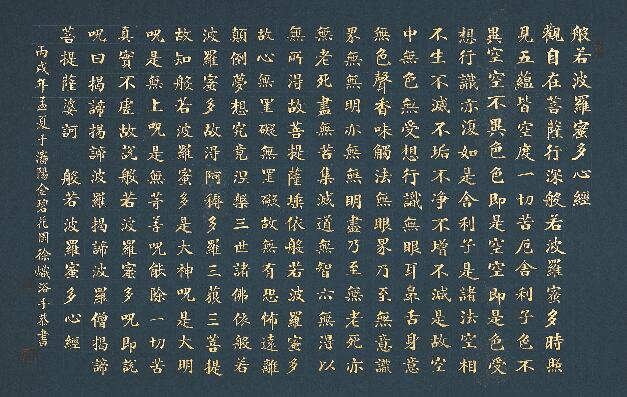 般若波羅蜜多心經
觀自在菩薩行深般若波羅蜜多時照
見五蘊皆空度一切苦厄舍利子色不
異空空不異色色即是空空即是色受
想行識亦復如是舍利子是諸法空相
不生不滅不垢不淨不增不減是故空
中無色無受想行識無眼耳鼻舌身意
無色聲香味觸法無眼界乃至無意識
界無無明亦無無明盡乃至無老死亦
無老死盡無苦集滅道無智亦無得以
無所得故菩提薩埵依般若波羅蜜多
故心無罣礙無罣礙故無有恐怖遠離
顛倒夢想究竟涅槃三世諸佛依般若
波羅蜜多故得阿耨多羅三藐三菩提
故知般若波羅蜜多是大神呪是大明
呪是無上呪是無等等呪能除一切苦
真實不虛故說般若波羅蜜多呪即說
呪曰揭諦揭諦波羅揭諦波羅僧揭諦
菩提薩婆訶 般若波羅蜜多心經
丙戌年孟夏于瀋陽金碧花園徐浴手恭書